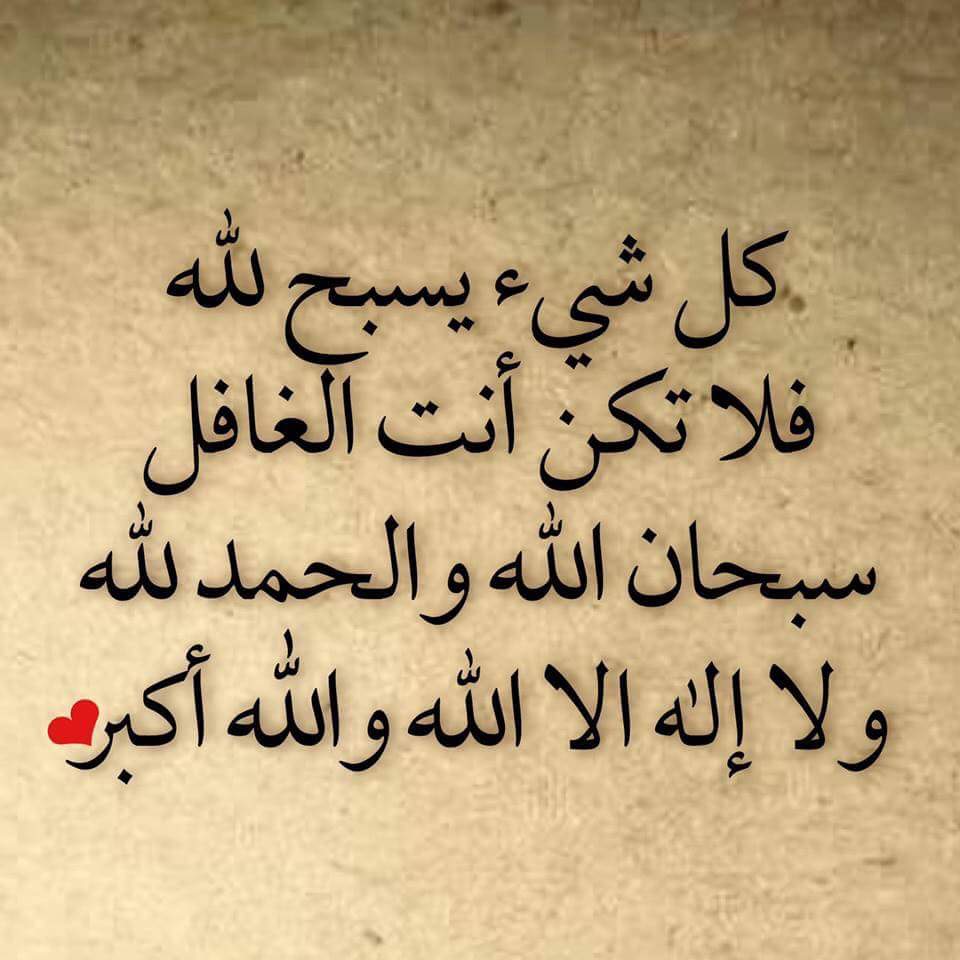 كل شيء يسبح لله
فلا تكن أنت الغافل
سبحان الله والحمد لله
ولا إله الا الله والله أكبر